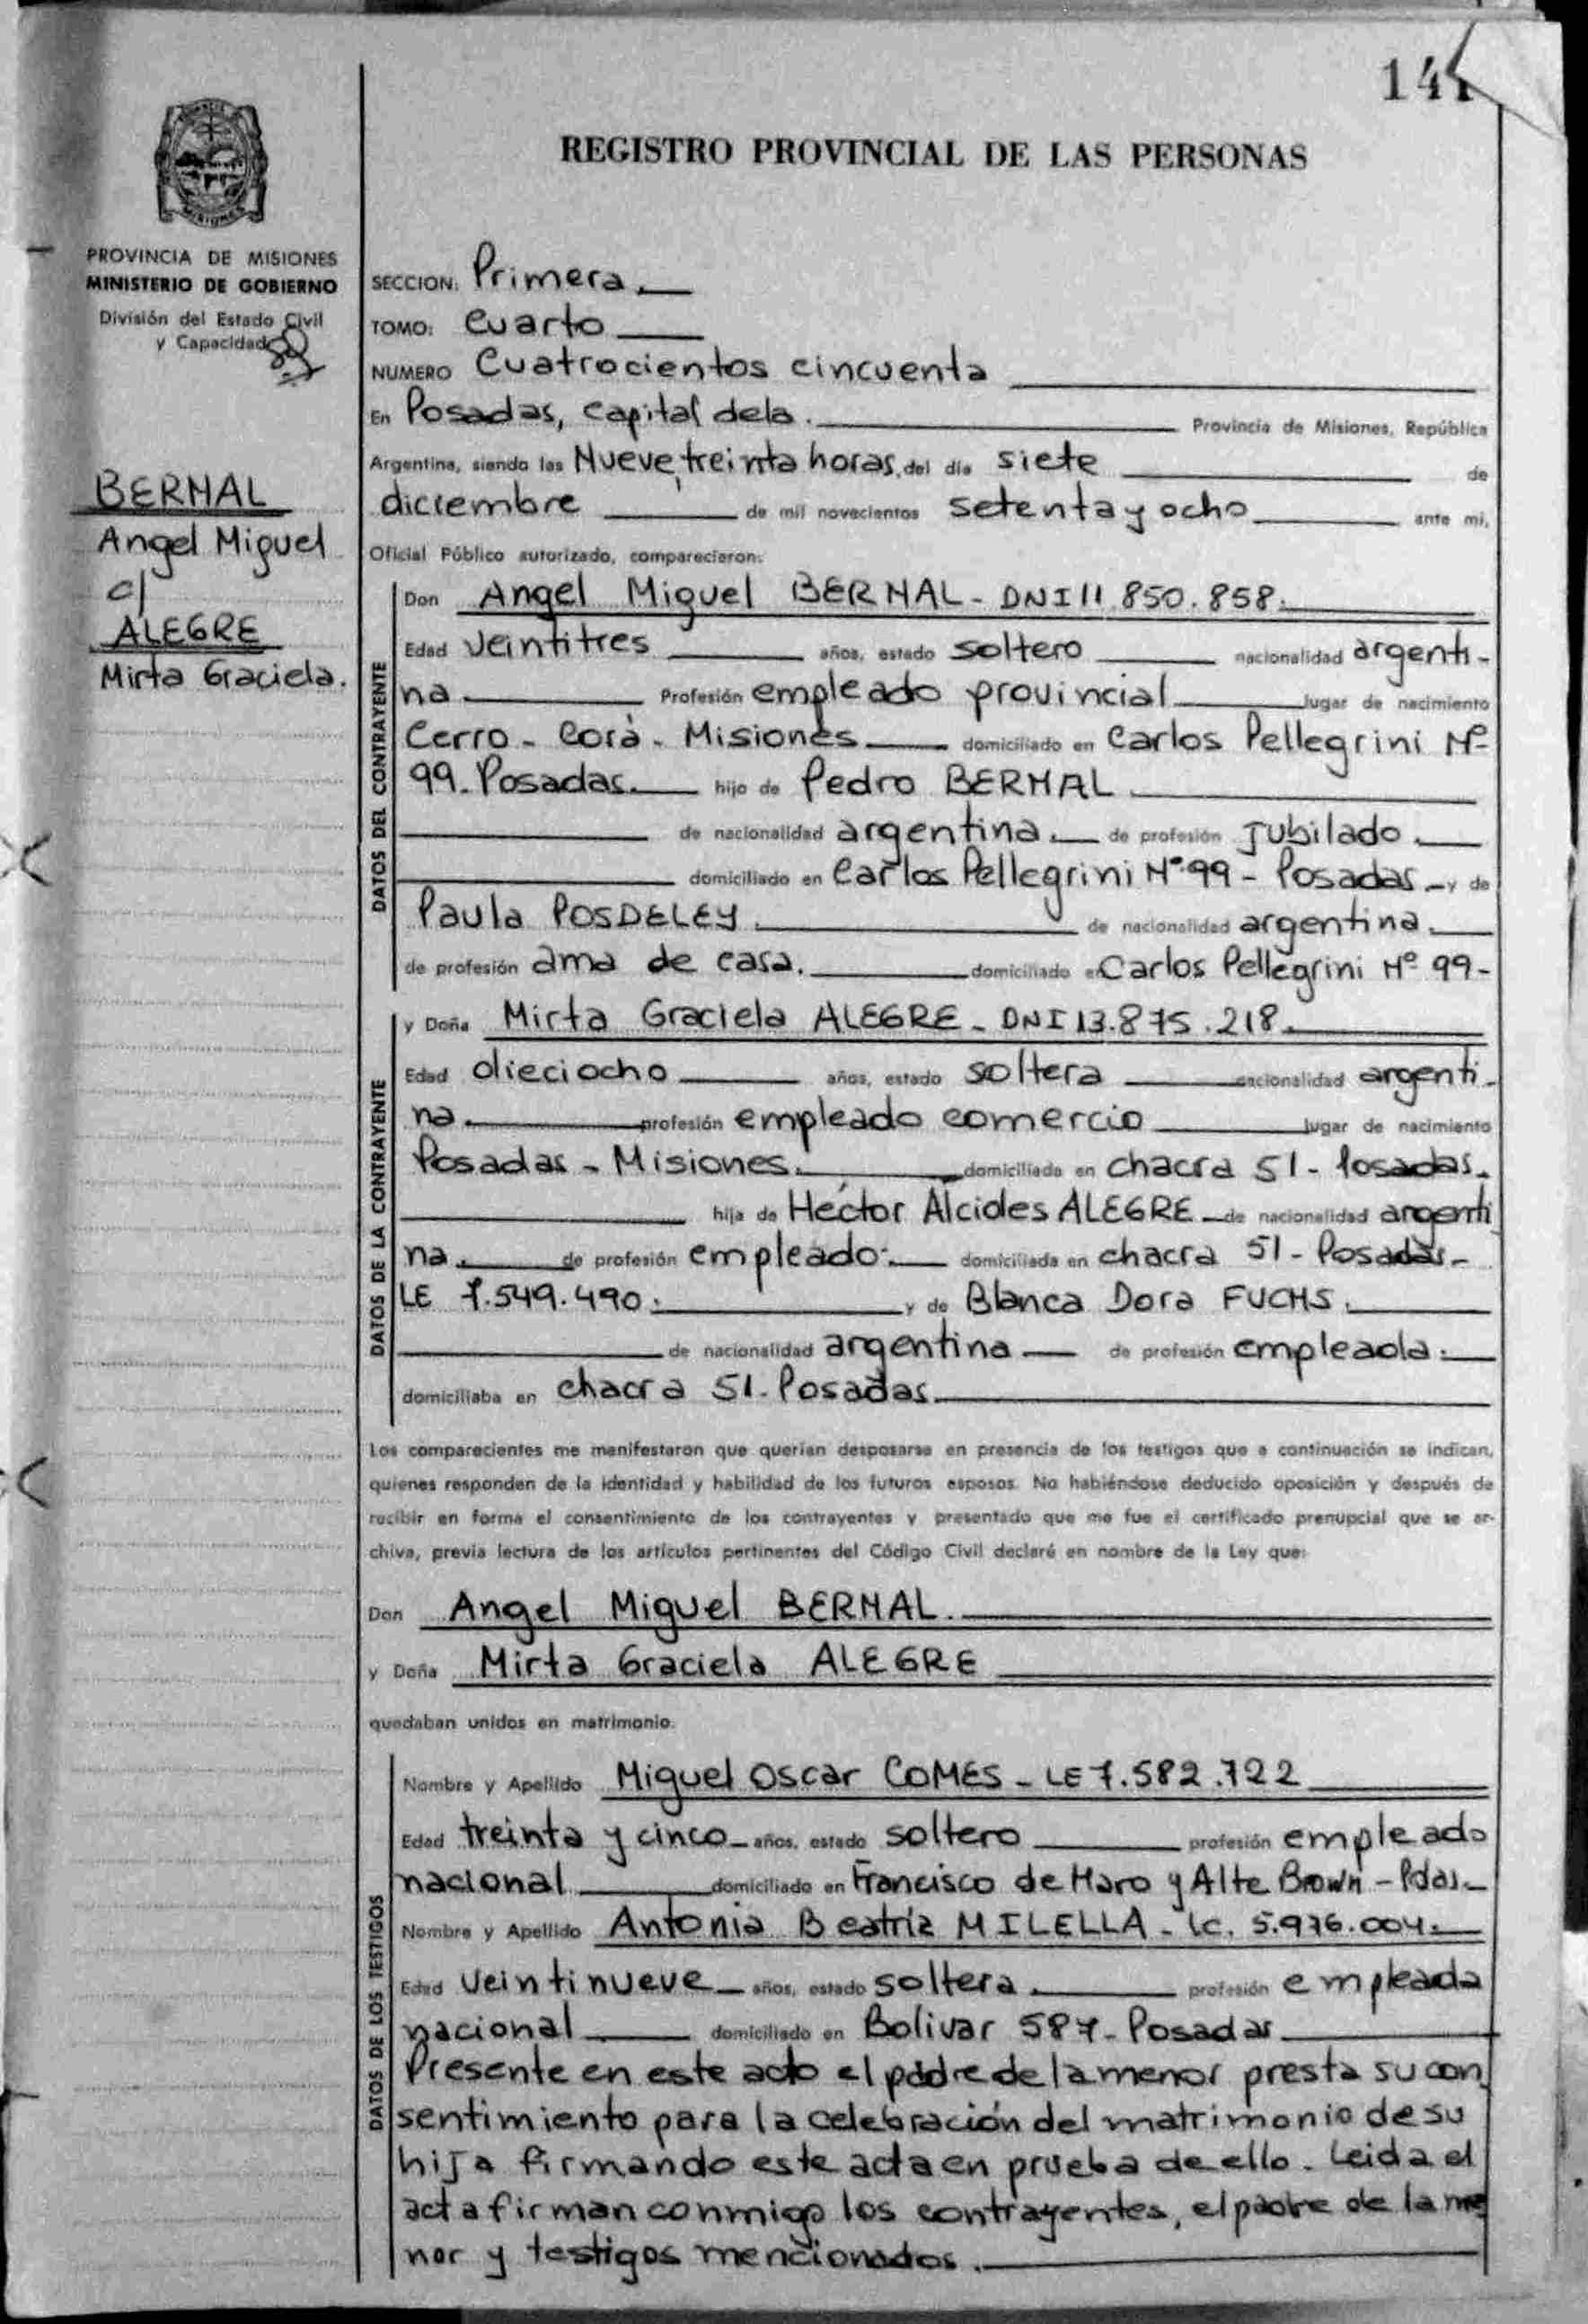 141
REGISTRO PROVINCIAL DE LAS PERSONAS
MISIONES
PROVINCIA DE MISIONES
MINISTERIO DE GOBIERNO
División del Estado Civil
y Capacidad
BERNAL
Angel Miguel
c/
ALEGRE
Mirta Graciela.
SECCION: Primera.
TOMO: Cuarto
NUMERO Cuatrocientos cincuenta
En Posadas, Capital dela. Provincia de Misiones, República
Argentina, siendo las Nueve, treinta horas, del día siete de
diciembre de mil novecientos setenta y ocho ante mí,
Oficial Público autorizado, comparecieron:
DATOS DEL CONTRAYENTE
Don Angel Miguel BERNAL - DNI 11.850.858.
Edad veintitres años, estado soltero nacionalidad argenti-
na. Profesión empleado provincial lugar de nacimiento
Cerro - Corá - Misiones. domiciliado en Carlos Pellegrini Nº
99. Posadas. hijo de Pedro BERNAL
de nacionalidad argentina. de profesión Jubilado.
domiciliado en Carlos Pellegrini Nº 99 - Posadas. y de
Paula POSDELEY. de nacionalidad argentina.
de profesión ama de casa. domiciliado en Carlos Pellegrini Nº 99-
DATOS DE LA CONTRAYENTE
y Doña Mirta Graciela ALEGRE - DNI 13.875.218.
Edad dieciocho años, estado soltera nacionalidad argenti-
na. profesión empleado comercio lugar de nacimiento
Posadas - Misiones. domiciliada en chacra 51 - Posadas.
hija de Héctor Alcides ALEGRE de nacionalidad argenti
na. de profesión empleado. domiciliada en chacra 51 - Posadas-
LE 7.549.490. y de Blanca Dora FUCHS.
de nacionalidad argentina de profesión empleada.
domiciliaba en chacra 51 - Posadas.
Los comparecientes me manifestaron que querían desposarse en presencia de los testigos que a continuación se indican,
quienes responden de la identidad y habilidad de los futuros esposos. No habiéndose deducido oposición y después de
recibir en forma el consentimiento de los contrayentes y presentado que me fue el certificado prenupcial que se ar-
chiva, previa lectura de los artículos pertinentes del Código Civil declaré en nombre de la Ley que:
Don Angel Miguel BERNAL.
y Doña Mirta Graciela ALEGRE
quedaban unidos en matrimonio.
DATOS DE LOS TESTIGOS
Nombre y Apellido Miguel Oscar COMES - LE 7.582.722
Edad treinta y cinco años, estado soltero profesión empleado
nacional domiciliado en Francisco de Haro y Alte Brown - Pdas.
Nombre y Apellido Antonia Beatriz MILELLA - lc. 5.976.004.
Edad veintinueve años, estado soltera. profesión empleada
nacional domiciliado en Bolivar 587 - Posadas
Presente en este acto el padre de la menor presta su con
sentimiento para la celebración del matrimonio de su
hija firmando este acta en prueba de ello. Leida el
acta firman conmigo los contrayentes, el padre de la me
nor y testigos mencionados.